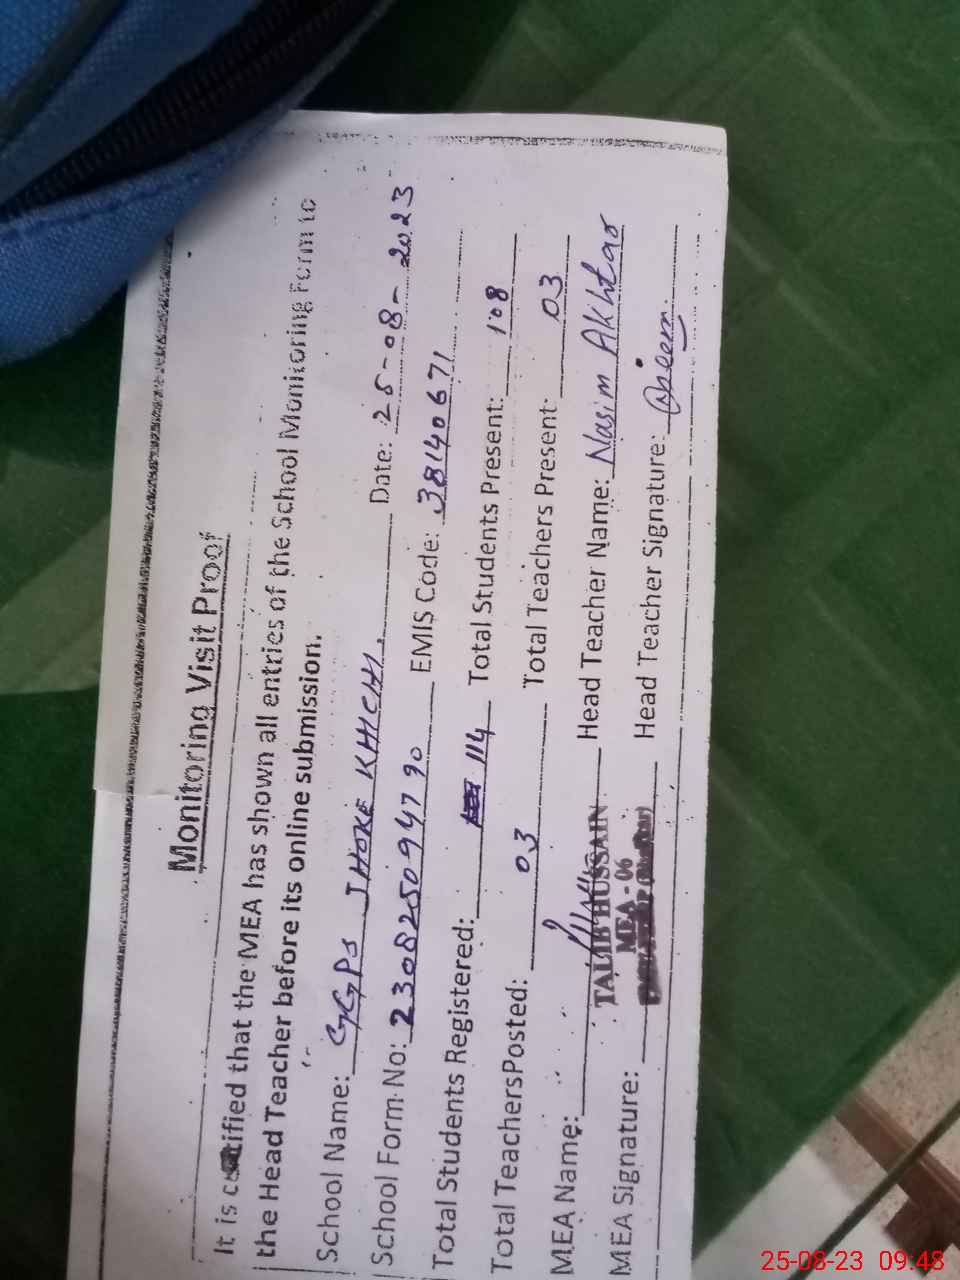 Monitoring Visit Proof
It is certified that the MEA has shown all entries of the School Monitoring Form to
the Head Teacher before its online submission.
School Name: GGPS JHOKE KHICHI. Date: 25-08-2023
School Form No: 230825094790 EMIS Code: 38140671
Total Students Registered: 114 Total Students Present: 108
Total TeachersPosted: 03 Total Teachers Present: 03
MEA Name: Head Teacher Name: Nasim Akhtar
TALIB HUSSAIN
MEA - 06
MEA Signature: Head Teacher Signature:
25-08-23 09:48